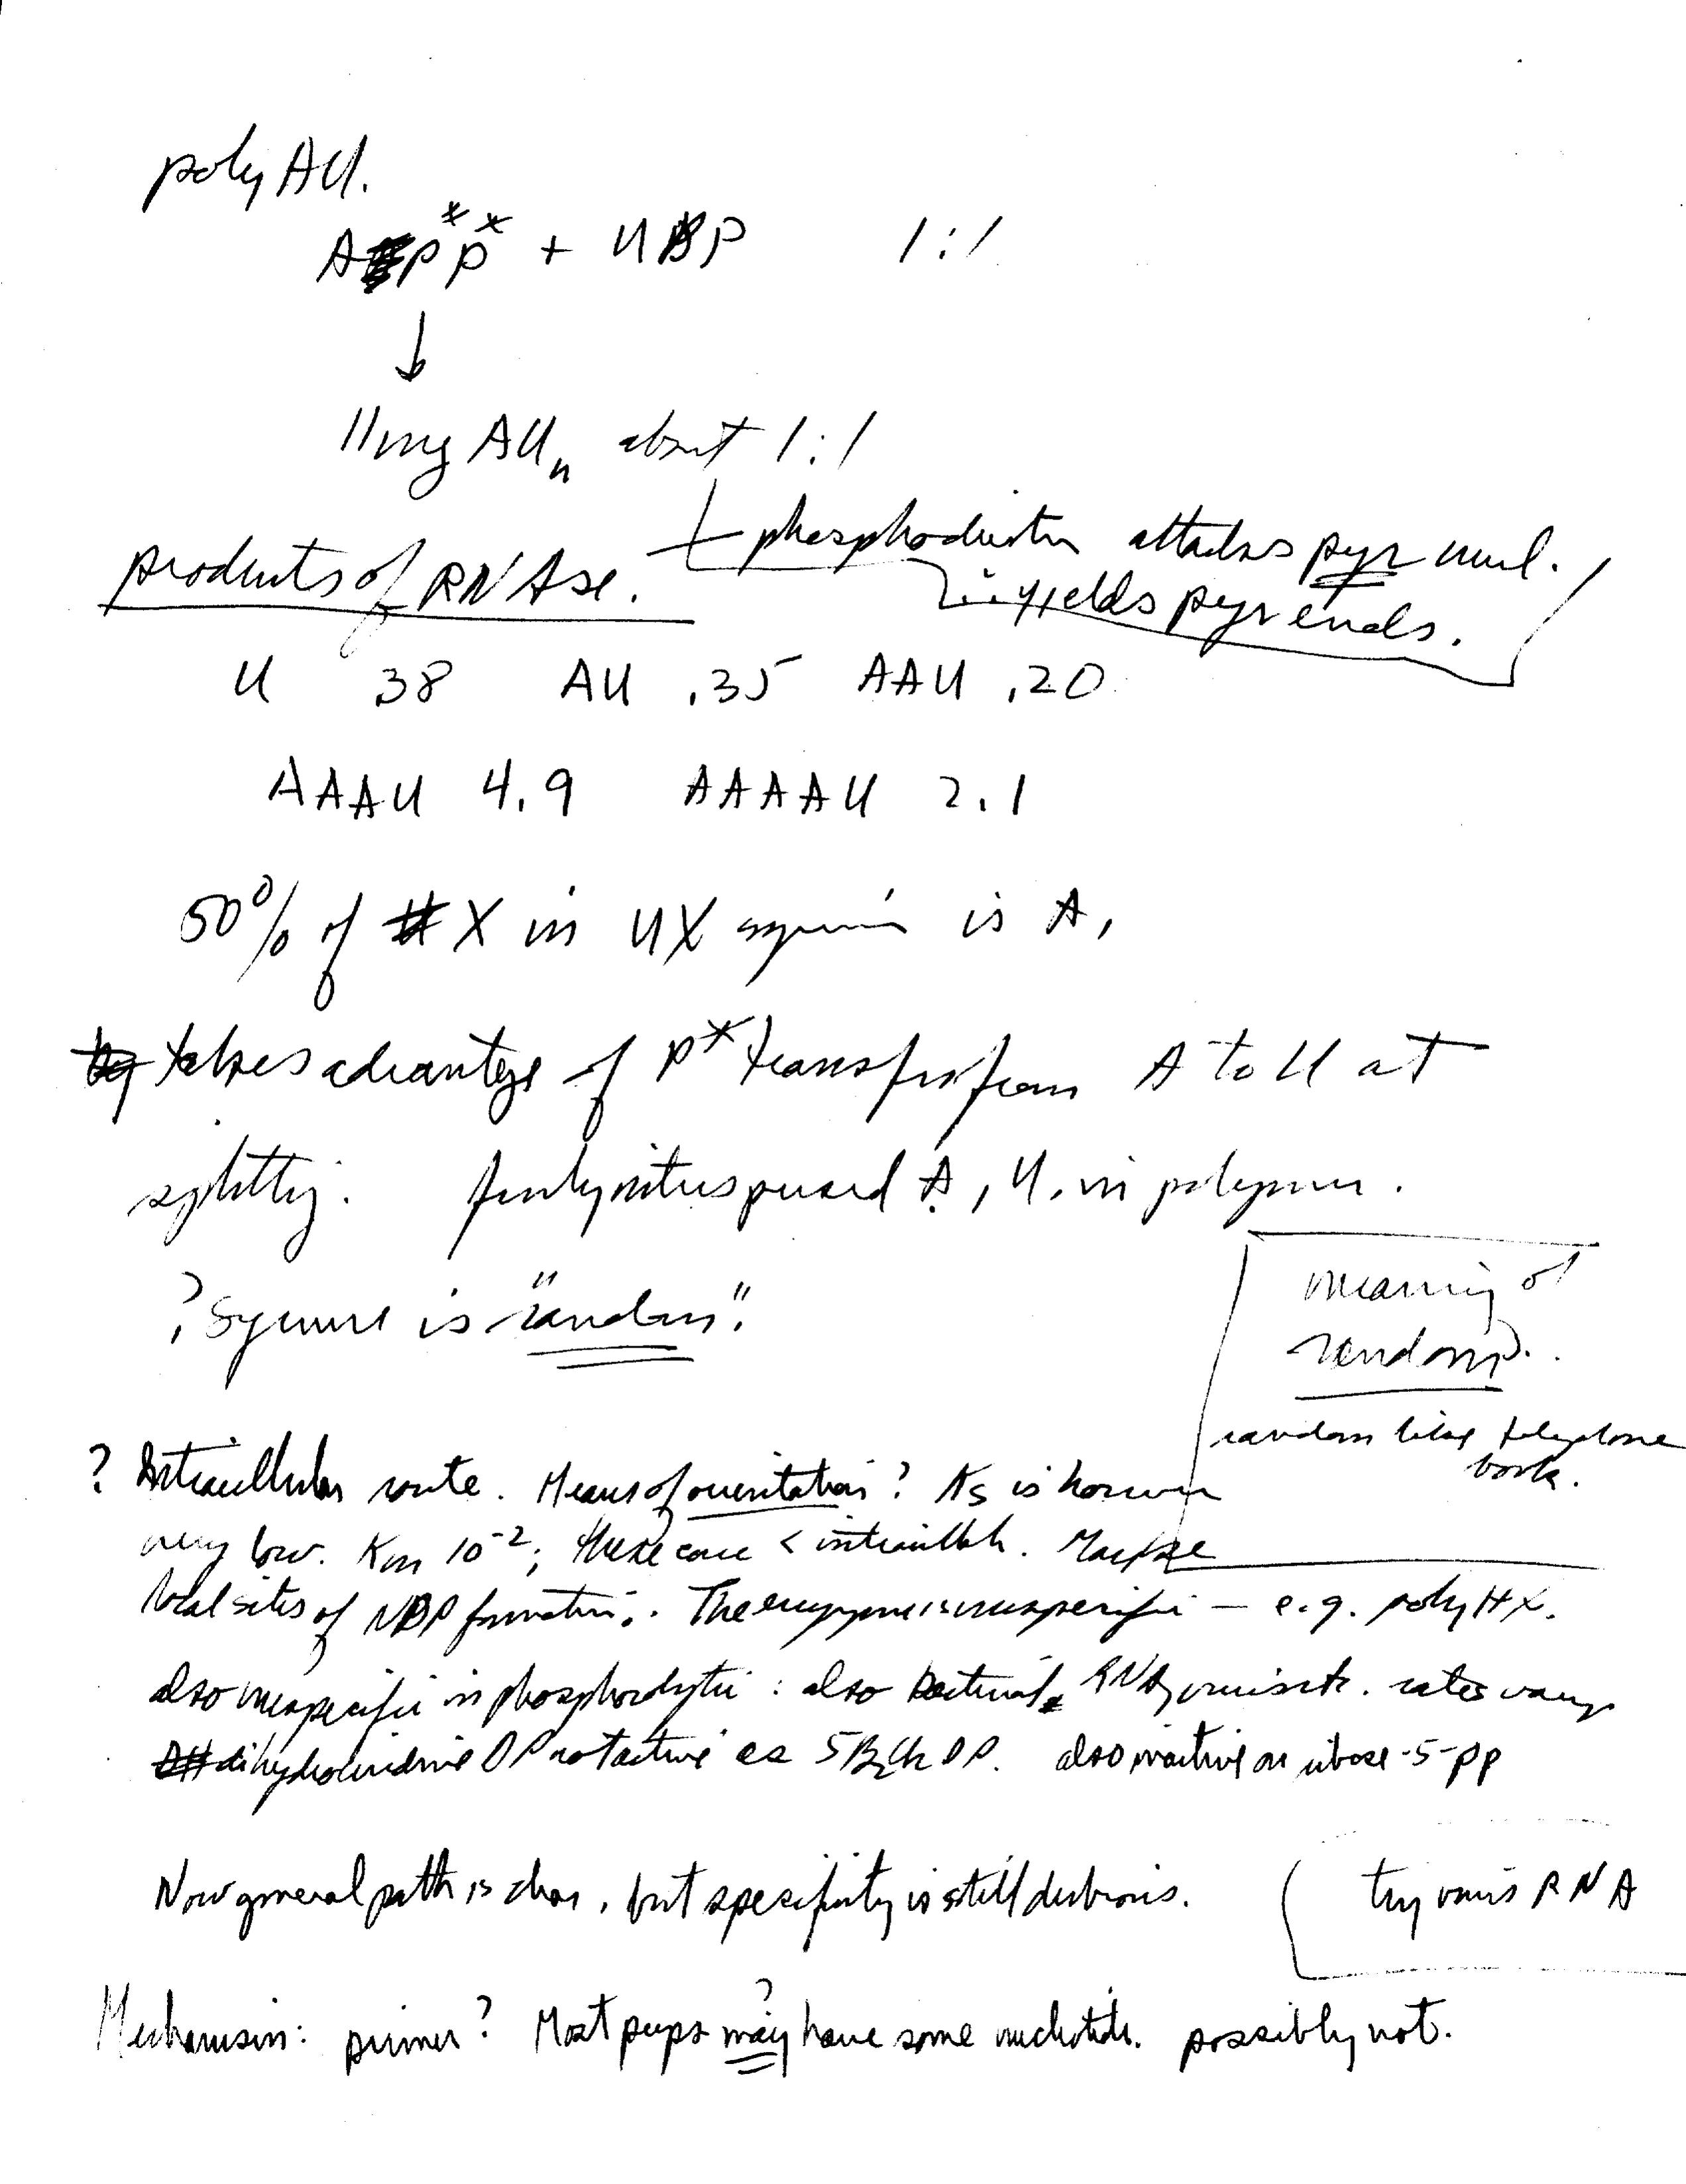 poly AU.
A P* P* + U P 1:1
↓
11 mg AUn about 1:1
products of RNAse. phosphodiester attacks pyr nucl.
∴ yields pyr ends.
U 38 AU .35 AAU .20
AAAU 4.9 AAAAU 2.1
50% of X in UX is A,
takes advantage of P* transfer from A to U at
splitting. A, U, in polymer.
? Sequence is "random".
meaning of
random?
random like telephone
book.
? Intracellular route. Means of orientation? Ks is known
very low. Km 10-2; these conc < intracellular. Maybe
local sites of NDP formation. The enzyme is unspecific — e.g. poly HX.
also unspecific in phosphorolysis: also bacterial RNA, rates vary
dihydrouridine DP not active as DP. also inactive on ribose-5-pp
Now general path is clear, but specificity is still dubious.
try virus RNA
Mechanism: primer? Most preps may? have some nucleotide. possibly not.